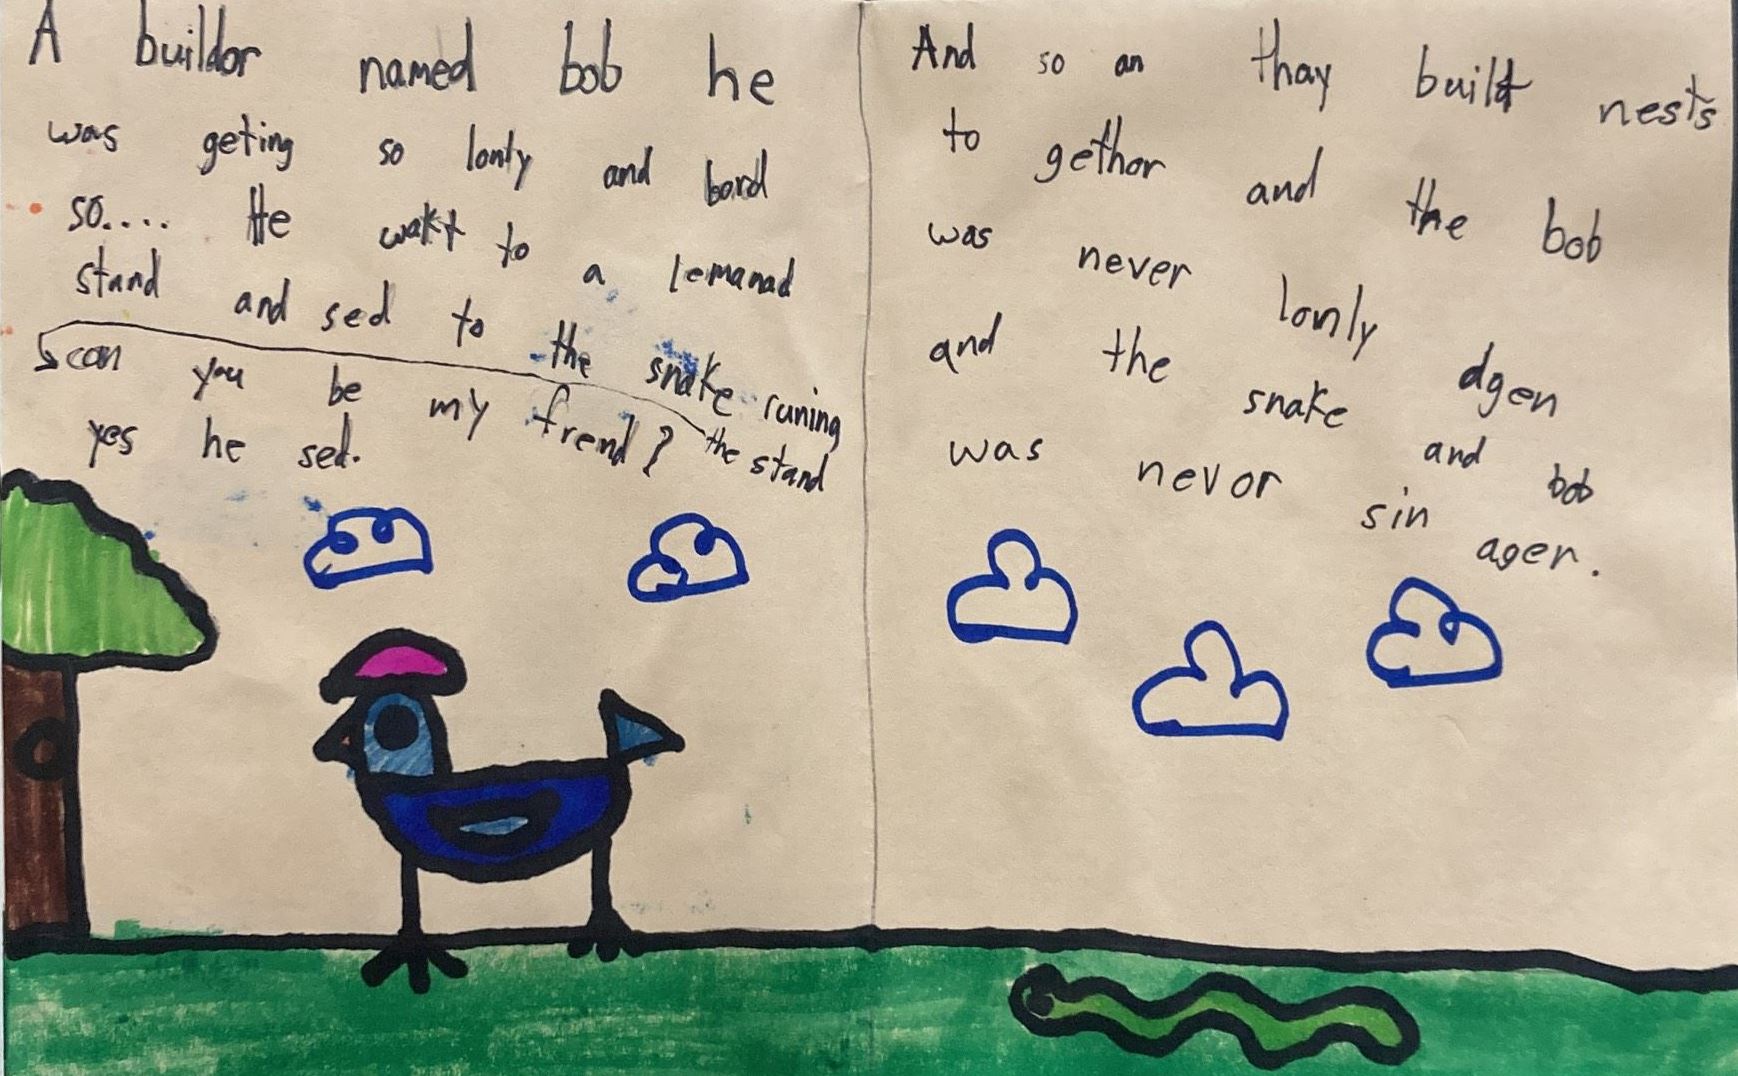 A buildor named bob he
was geting so lonly and bord
so.... He wakt to a lemanad
stand and sed to the snake runing
the stand
can you be my frend?
yes he sed.
And so an thay built nests
to gethor and the bob
was never lonly dgen
and the snake and bob
was nevor sin agen.